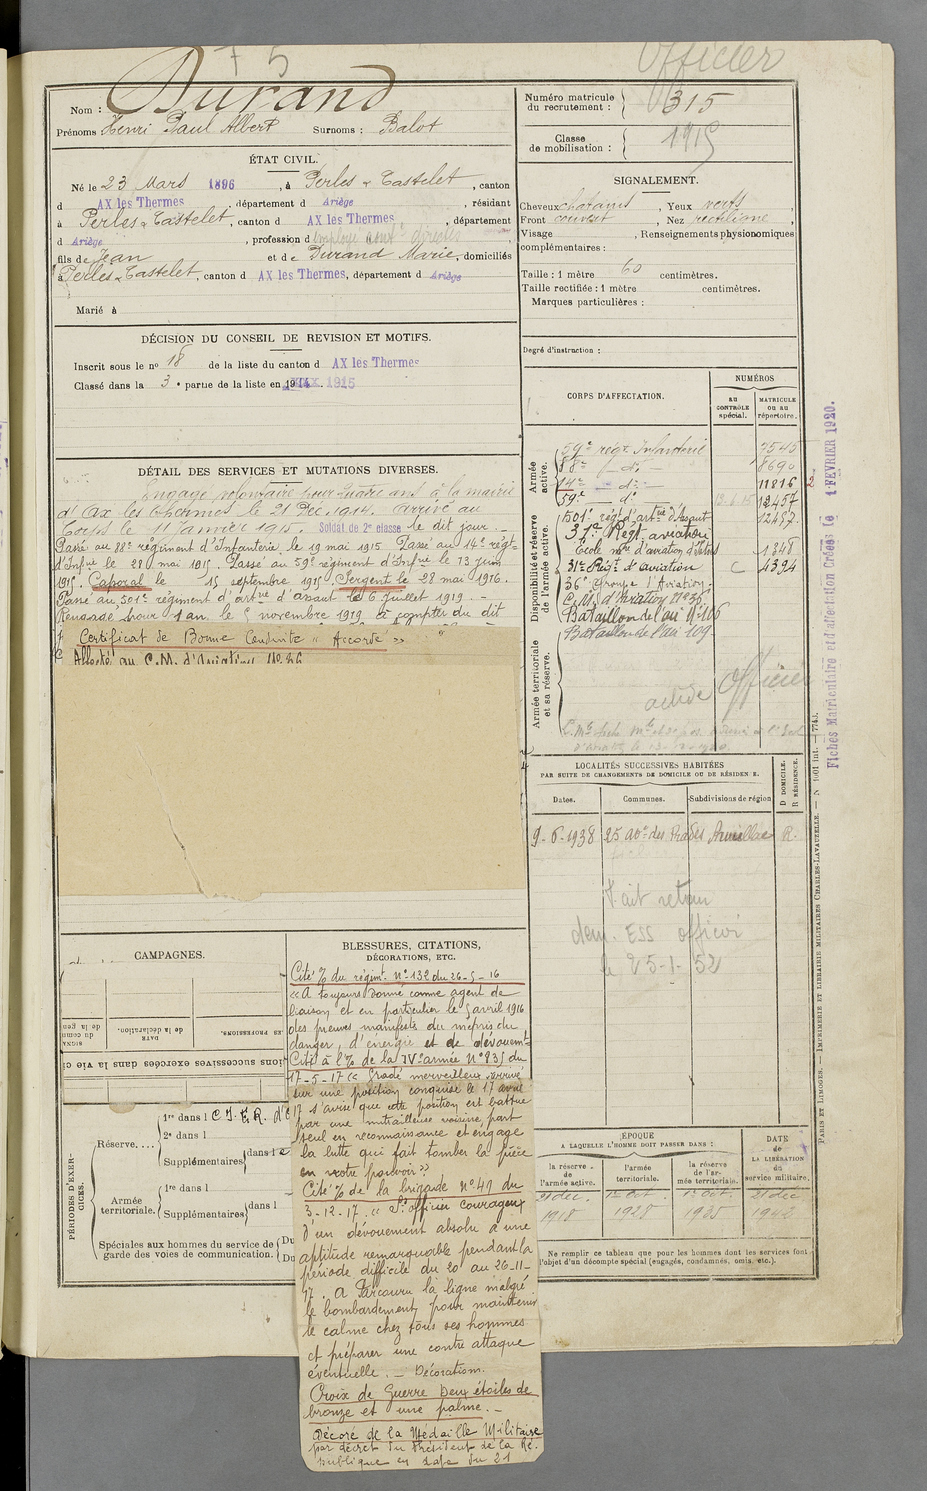 75
Officier
Nom : Durand
Prénoms Henri Paul Albert Surnoms : Balot
Numéro matricule
du recrutement : 315
Classe
de mobilisation : 1915
ÉTAT CIVIL.
Né le 23 Mars 1896, à Perles & Castelet, canton
d AX les Thermes, département d Ariège, résidant
à Perles & Castelet, canton d AX les Thermes, département
d Ariège, profession d employé contr. directes
fils de Jean et de Durand Marie, domiciliés
à Perles & Castelet, canton d AX les Thermes, département d Ariège
Marié à
SIGNALEMENT.
Cheveux chatains, Yeux verts,
Front couvert, Nez rectiligne,
Visage , Renseignements physionomiques
complémentaires :
Taille : 1 mètre 60 centimètres.
Taille rectifiée : 1 mètre centimètres.
Marques particulières :
Degré d'instruction :
DÉCISION DU CONSEIL DE REVISION ET MOTIFS.
Inscrit sous le no 18 de la liste du canton d AX les Thermes
Classé dans la 3e partie de la liste en 1915
DÉTAIL DES SERVICES ET MUTATIONS DIVERSES.
Engagé volontaire pour quatre ans à la mairie
d'Ax les Thermes le 21 Déc. 1914. Arrivé au
Corps le 11 Janvier 1915. Soldat de 2e classe le dit jour. -
Passé au 88e régiment d'Infanterie le 19 mai 1915 Passé au 14e régt
d'Infrie le 28 mai 1915. Passé au 59e régiment d'Infrie le 13 juin
1915. Caporal le 15 septembre 1915. Sergent le 28 mai 1916.
Passé au 501e régiment d'artrie d'assaut le 6 Juillet 1919. -
Rengagé pour 1 an. le 5 novembre 1919 à compter du dit
Certificat de Bonne Conduite « Accordé »
Affecté au C.M. d'Aviation No 36
CORPS D'AFFECTATION.
NUMÉROS
AU CONTRÔLE spécial.
MATRICULE OU AU répertoire.
Armée active.
59e régt Infanterie 7545
88e - do - 8690
14e - do - 11816
59e do 12457
501e régt d'artrie d'Assaut 12457
Disponibilité et réserve de l'armée active.
37e Régt aviation
Ecole mre d'aviation d'Istres 1348
31e Régt d'aviation C 4394
36e Groupe d'Aviation.
C.M. d'Aviation No 36
Bataillon de l'air No 106
Bataillon de l'air 109.
Armée territoriale et sa réserve.
Officier
Fiches Matriculaire et d'affectation Créées le 1 FEVRIER 1920.
LOCALITÉS SUCCESSIVES HABITÉES
PAR SUITE DE CHANGEMENTS DE DOMICILE OU DE RÉSIDENCE.
Dates. Communes. Subdivisions de région D DOMICILE. R RÉSIDENCE.
9-6-1938 25 av. des Prades Aurillac R.
Fait retour
dem. ESS officier
le 25-1-52
CAMPAGNES.
BLESSURES, CITATIONS,
DÉCORATIONS, ETC.
Cité % du régimt. No 132 du 26-5-16
« A toujours donné comme agent de
liaison et en particulier le 5 avril 1916
des preuves manifests du mépris du
danger, d'énergie et de dévouemt
Cité à l'% de la IVe armée No 835 du
17-5-17 « Gradé merveilleux arrivé
sur une position conquise le 17 avril
17 s'avise que cette position est battue
par une mitrailleuse voisine, part
seul en reconnaissance et engage
la lutte qui fait tomber la pièce
en notre pouvoir »
Cité % de la brigade No 49 du
3-12-17. « S. officier courageux
d'un dévouement absolu a une
aptitude remarquable pendant la
période difficile du 20 au 26-11-
17. A Parcouru la ligne malgré
le bombardement pour maintenir
le calme chez tous ses hommes
et préparer une contre attaque
éventuelle. - Décorations.
Croix de Guerre Deux étoiles de
bronze et une palme. -
Décoré de la Médaille Militaire
par décret du Président de la Ré-
publique en date du 21
PÉRIODES D'EXERCICES.
Réserve....
1re dans l C.I.E.R. d'
2e dans l
Supplémentaires dans l
Armée territoriale.
1re dans l
Supplémentaires dans l
Spéciales aux hommes du service de
garde des voies de communication.
ÉPOQUE
A LAQUELLE L'HOMME DOIT PASSER DANS :
la réserve de l'armée active.
l'armée territoriale.
la réserve de l'armée territoriale.
DATE de LA LIBÉRATION du service militaire.
21 déc. 1er Oct. 1er Oct. 21 déc.
1918 1928 1935 1942
Ne remplir ce tableau que pour les hommes dont les services font
l'objet d'un décompte spécial (engagés, condamnés, omis, etc.).
PARIS ET LIMOGES. — IMPRIMERIE ET LIBRAIRIE MILITAIRES CHARLES-LAVAUZELLE. — N 1001 int. — 7743.